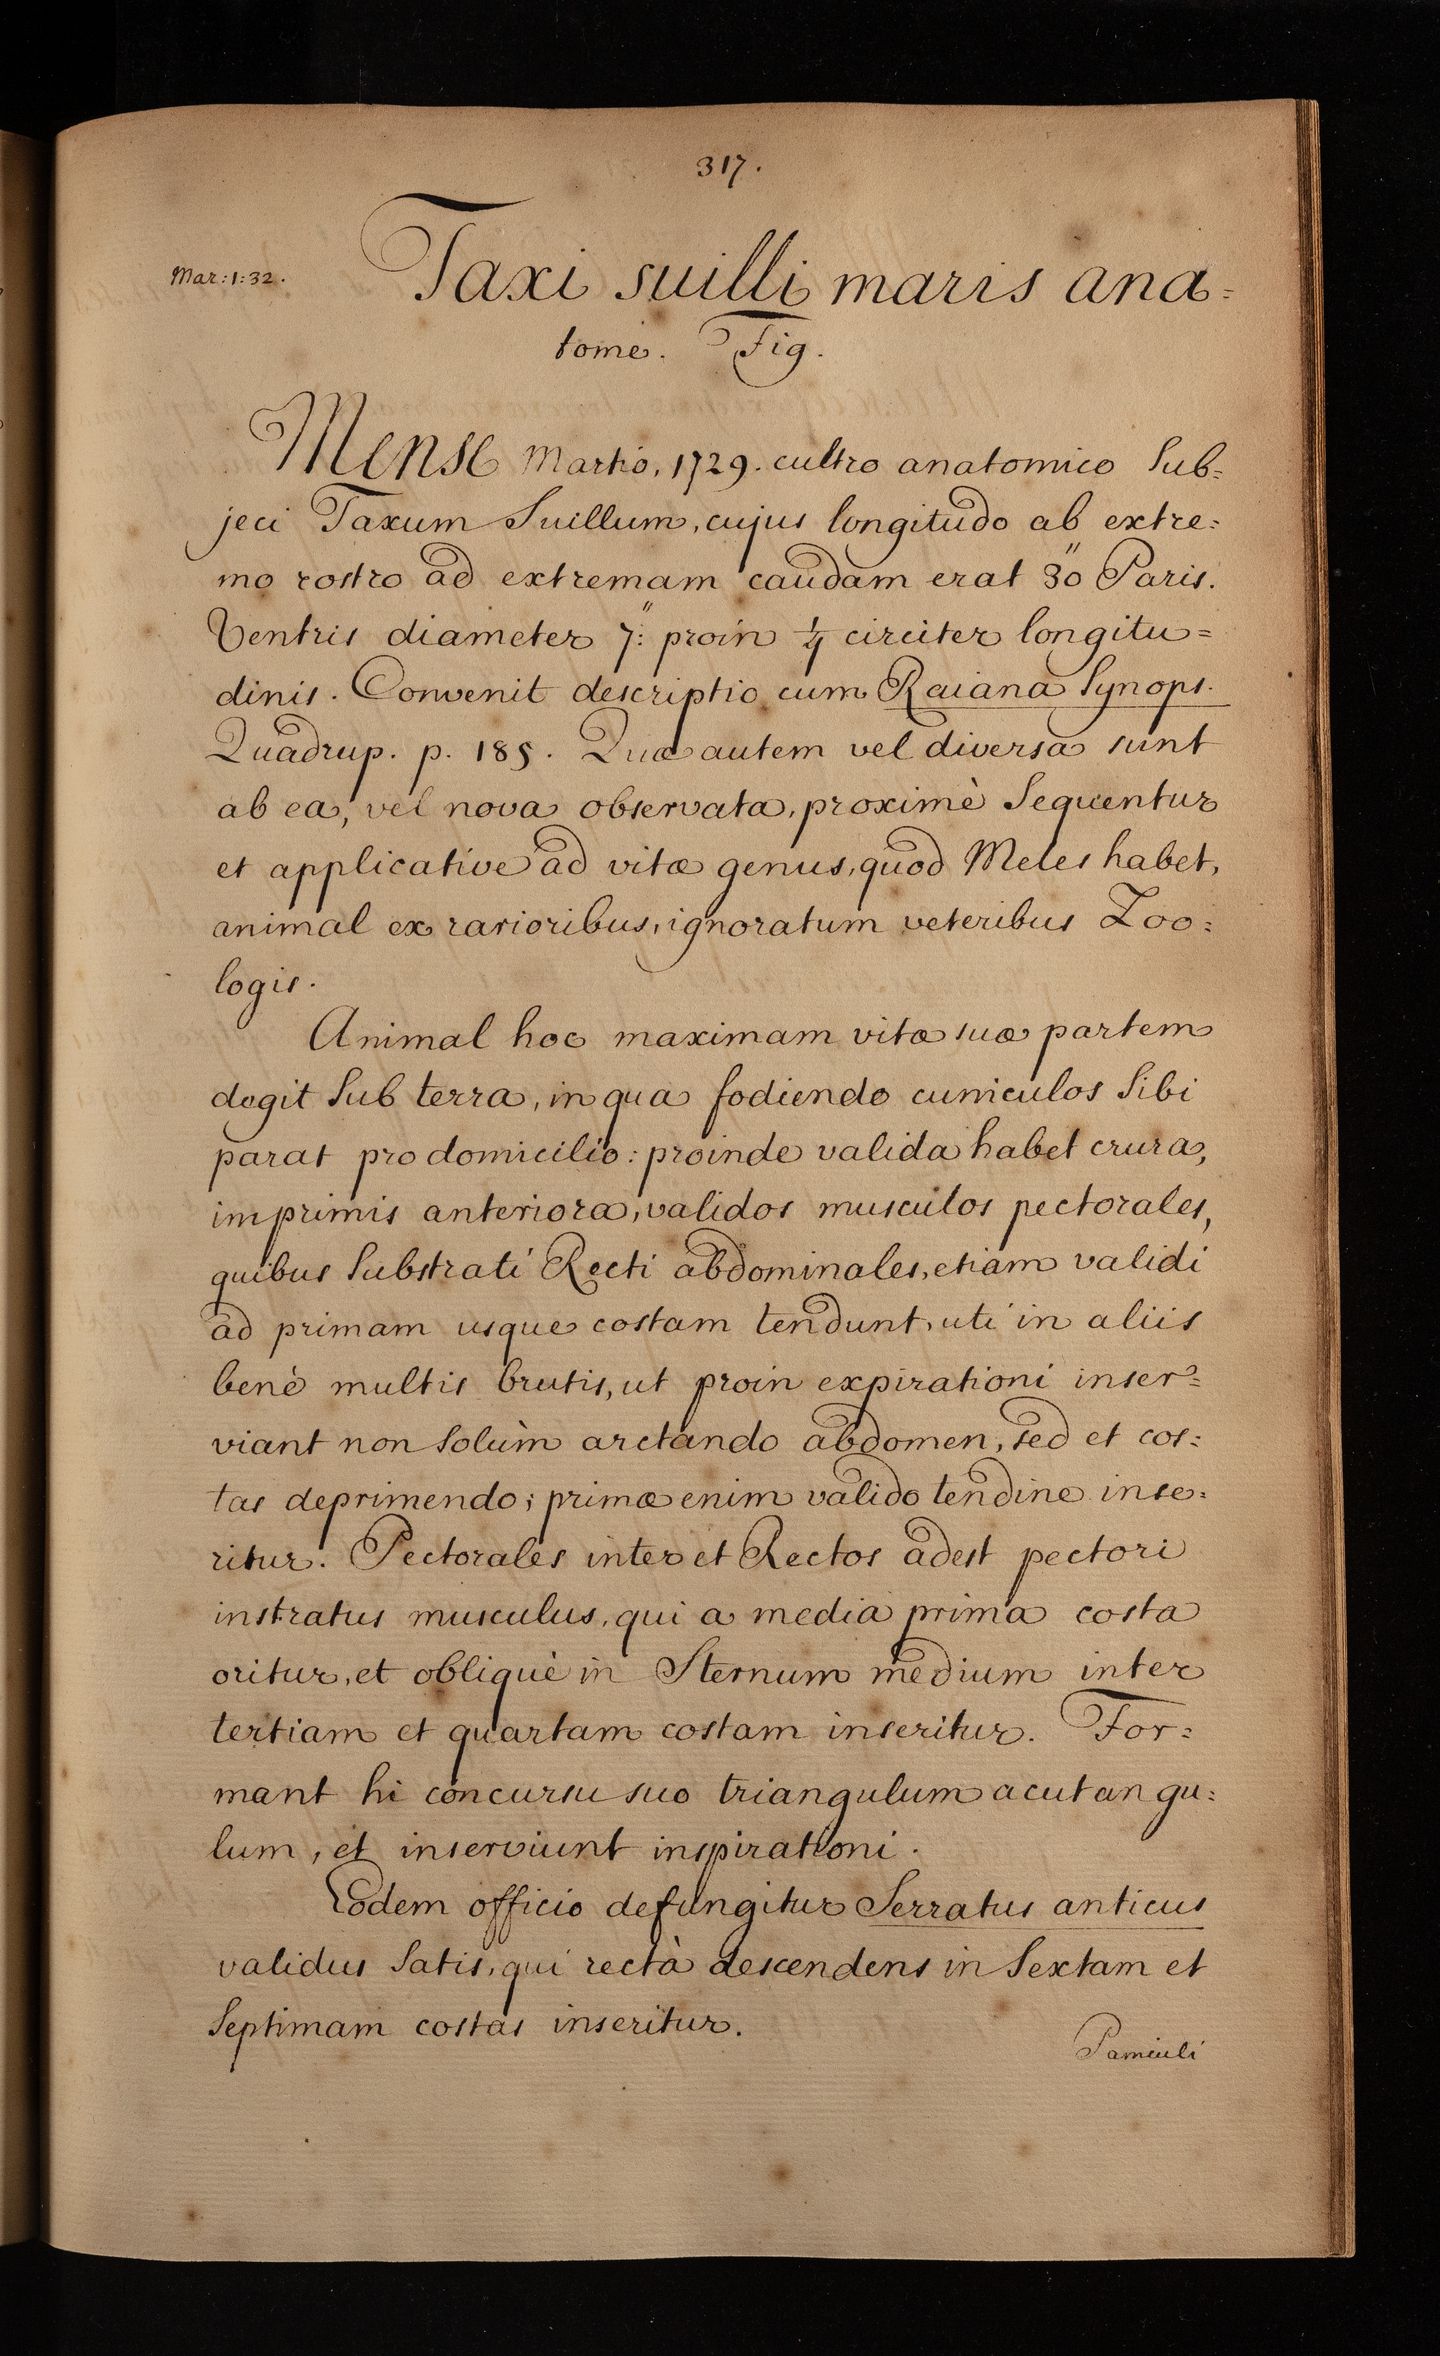 317.
Mar:1:32.
Taxi suilli maris ana=
tome. Fig.
Mense Martio, 1729. cultro anatomico sub=
jeci Taxum Suillum, cujus longitudo ab extre=
mo rostro ad extremam caudam erat 30" Paris.
Ventris diameter 7": proin 1/4 circiter longitu=
dinis. Convenit descriptio cum Raiana Synops.
Quadrup. p. 185. Quæ autem vel diversa sunt
ab ea, vel nova observata, proximè sequentur
et applicative ad vitæ genus, quod Meles habet,
animal ex rarioribus, ignoratum veteribus Zoo=
logis.
Animal hoc maximam vitæ suæ partem
degit sub terra, in qua fodiendo cuniculos sibi
parat pro domicilio: proinde valida habet crura,
imprimis anteriora, validos musculos pectorales,
quibus substrati Recti abdominales, etiam validi
ad primam usque costam tendunt, uti in aliis
benè multis brutis, ut proin expirationi inser=
viant non solùm arctando abdomen, sed et cos=
tas deprimendo; primæ enim valido tendine inse=
ritur. Pectorales inter et Rectos adest pectori
instratus musculus, qui a media prima costa
oritur, et obliquè in Sternum medium inter
tertiam et quartam costam inseritur. For=
mant hi concursu suo triangulum acutangu=
lum, et inserviunt inspirationi.
Eodem officio defungitur Serratus anticus
validus satis, qui rectà descendens in sextam et
septimam costas inseritur.
Pamiculi